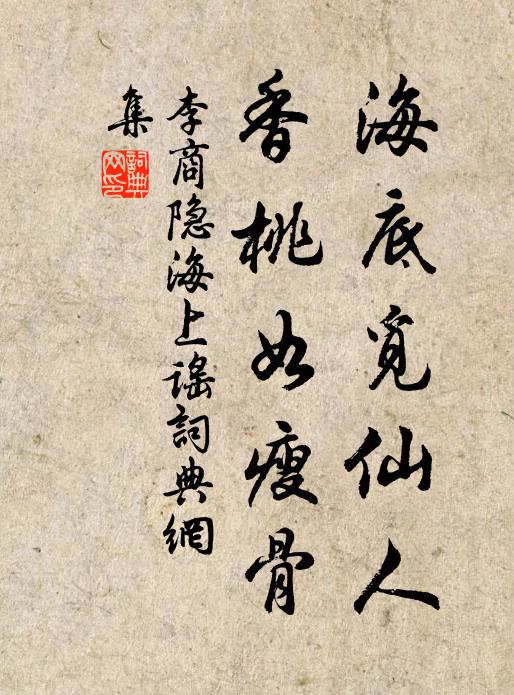 海底觅仙人
香桃如瘦骨
李商隐海上谣詞典網
集
詞典
网印